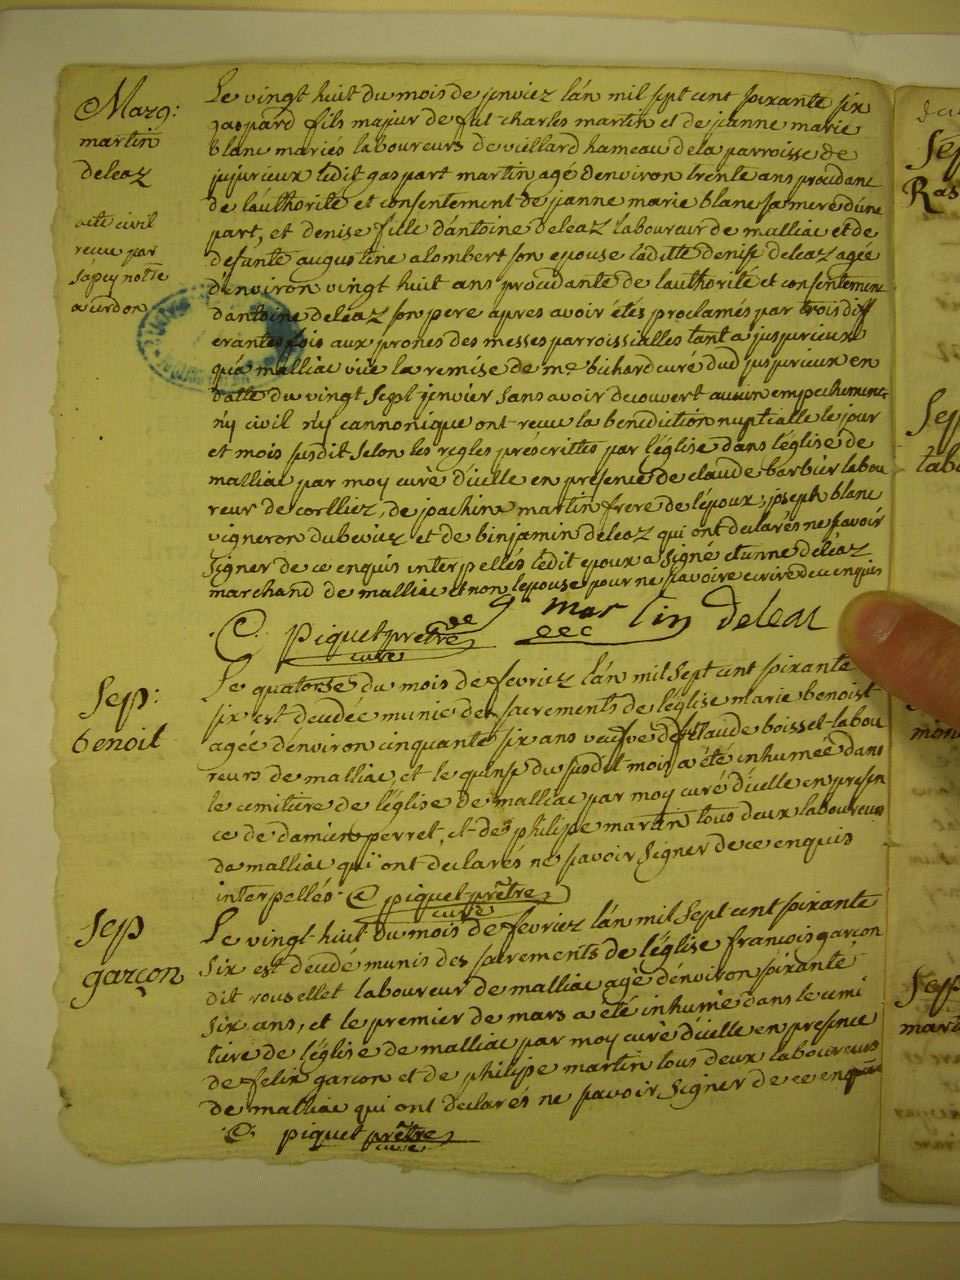 Marg:
martin
deleaz
acte civil
recue par
sapey notre
a cerdon
Le vingt huit du mois de jenvier lán mil sept cent soixante six
gaspard fils majur de fut charles martin et de jeanne marie
blanc maries laboureurs de viellard hameau de la parroisse de
jujurieux ledit gaspart martin agé denviron trente ans procédant
de láuthorité et consentement de jeanne marie blanc sa mere dúne
part, et denise fille dántoine deleaz laboureur de malliac et de
defunte augustine alombert son epouse laditte denise deleaz agée
dénviron vingt huit ans procédante de láuthorité et consentement
dántoine deléaz son pere apres avoir étés proclamés par trois diff
erantes fois aux prones des messes parroissialles tant a jusjurieux
quá malliac vüe la remise de mre bichard curé dud jusjurieux en
datte du vingt sept jenvier sans avoir decouvert aucun empechement
n'y civil n'y cannonique ont recue la benediction nuptialle le jour
et mois susdit selon les regles préscrittes par léglise dans léglise de
malliac par moy curé dícelle en présence de claude barbier labou
reur de corlliez, de joachim martin frere de lépoux, joseph blanc
vigneron dubeviez et de binjamin deleaz qui ont declarés ne savoir
signer de ce enquis interpellés ledit epoux a signé etienne deléaz
marchand de malliac et non lepouse pour ne savoire ecrire de ce enquis
martin deleaz
C. piquet prêtre
curé
Sep:
benoit
Le quatorse du mois de fevriez lán mil sept cent soixante
six est decedée munie des sacrements de léglise marie benoist
agée dénviron cinquante six ans veufve de ft claude boissel labou
reurs de malliac, et le quinse du susdit mois a été inhumée dans
le cemitiere de léglise de malliac par moy curé dícelle en presen
ce de damien perret, et de philipe martin tous deux laboureurs
de malliac qui ont declarés ne savoir signer de ce enquis
interpellés. C piquet prêtre
curé
Sep
garçon
Le vingt huit du mois de fevriez lán mil sept cent soixante
six est decedé munis des sacrements de léglise francois garçon
dit rousellet laboureur de malliac agé dénviron soixante
six ans, et le premier de mars a été inhumé dans le cemi
tiere de léglise de malliac par moy curé dícelle en presence
de felix garcon et de philipe martin tous deux laboureurs
de malliac qui ont declarés ne savoir signer de ce enquis
C. piquet prêtre
curé